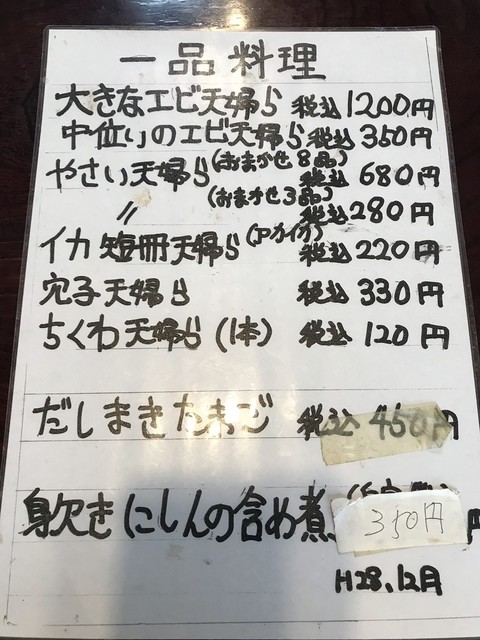 一品料理
大きなエビ天婦ら 税込1200円
中位いのエビ天婦ら 税込350円
やさい天婦ら(おまかせ8品) 税込680円
〃(おまかせ3品) 税込280円
イカ短冊天婦ら 税込220円
穴子天婦ら 税込330円
ちくわ天婦ら(1本) 税込120円
だしまきたまご 税込450円
身欠きにしんの含め煮 350円 円
H28.12月